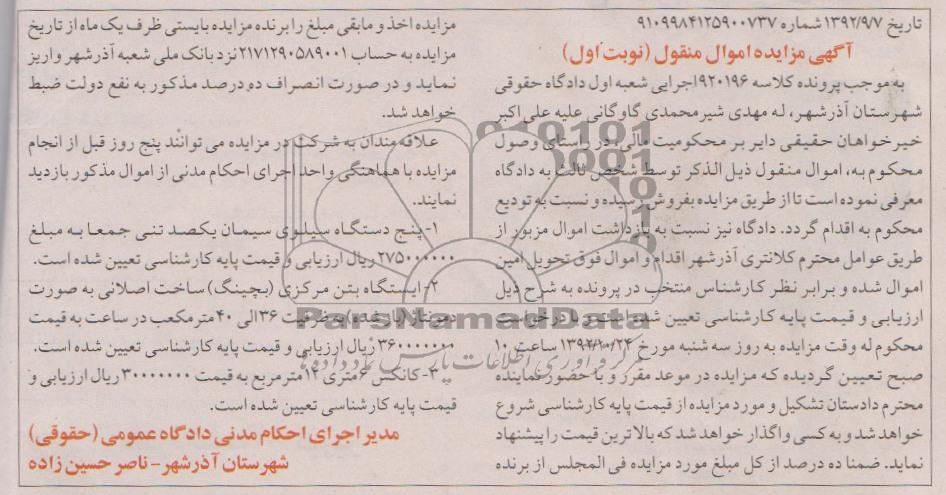 تاریخ ۱۳۹۲/۹/۷ شماره ۹۱۰۹۹۸۴۱۲۵۹۰۰۷۳۷
آگهی مزایده اموال منقول (نوبت اول)
به موجب پرونده کلاسه ۹۲۰۱۹۶اجرایی شعبه اول دادگاه حقوقی
شهرستان آذرشهر، له مهدی شیرمحمدی گاوگانی علیه علی اکبر
خیرخواهان حقیقی دایر بر محکومیت مالی، در راستای وصول
محکوم به، اموال منقول ذیل الذکر توسط شخص ثالث به دادگاه
معرفی نموده است تا از طریق مزایده بفروش رسیده و نسبت به تودیع
محکوم به اقدام گردد. دادگاه نیز نسبت به بازداشت اموال مزبور از
طریق عوامل محترم کلانتری آذرشهر اقدام و اموال فوق تحویل امین
اموال شده و برابر نظر کارشناس منتخب در پرونده به شرح ذیل
ارزیابی و قیمت پایه کارشناسی تعیین شده است و با درخواست
محکوم له وقت مزایده به روز سه شنبه مورخ ۱۳۹۲/۱۰/۲۴ ساعت ۱۰
صبح تعیین گردیده که مزایده در موعد مقرر و با حضور نماینده
محترم دادستان تشکیل و مورد مزایده از قیمت پایه کارشناسی شروع
خواهد شد و به کسی واگذار خواهد شد که بالاترین قیمت را پیشنهاد
نماید. ضمنا ده درصد از کل مبلغ مورد مزایده فی المجلس از برنده
مزایده اخذ و مابقی مبلغ را برنده مزایده بایستی ظرف یک ماه از تاریخ
مزایده به حساب ۲۱۷۱۲۹۰۵۸۹۰۰۱ نزد بانک ملی شعبه آذرشهر واریز
نماید و در صورت انصراف ده درصد مذکور به نفع دولت ضبط
خواهد شد.
علاقه مندان به شرکت در مزایده می توانند پنج روز قبل از انجام
مزایده با هماهنگی واحد اجرای احکام مدنی از اموال مذکور بازدید
نمایند.
۱- پنج دستگاه سیلوی سیمان یکصد تنی جمعا به مبلغ
۲۷۵۰۰۰۰۰۰۰ ریال ارزیابی و قیمت پایه کارشناسی تعیین شده است.
۲- ایستگاه بتن مرکزی (بچینگ) ساخت اصلانی به صورت
دمونتاژ (باز شده) به ظرفیت ۳۶ الی ۴۰ مترمکعب در ساعت به قیمت
ریال ارزیابی و قیمت پایه کارشناسی تعیین شده است.
۳- کانکس ۶ متری ۱۲ مترمربع به قیمت ۳۰۰۰۰۰۰۰ ریال ارزیابی و
قیمت پایه کارشناسی تعیین شده است.
مدیر اجرای احکام مدنی دادگاه عمومی (حقوقی)
شهرستان آذرشهر - ناصر حسین زاده
ParsNamadData